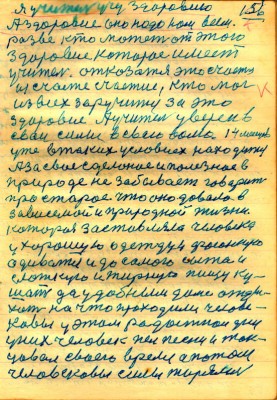 156
Я учитель учу здоровию
А здоровие оно надо нам всем.
разве кто может от этого
здоровие которое имеет
учитель. отказатя это счастя
и счастя счастие, кто мог
из всех заручити за это
здоровие. Я учитель уверен в
свои силы в свою волю
уже в таких условиях находити
А за свое сделоное и полезное в
природе не забывает говорит
про старое что оно довала в
зависемой и природной жизни.
которая заставляла человека
у хорошую одежду и фасонную
адивати и до самого сыта и
слоткую и жирную пищу ку-
шат да у добнем доме отды-
хат на что проходили челове-
ковы у этом радостнои дни
у них человек пел песни и тан-
цовал своего время а потом
человековы силы теряли